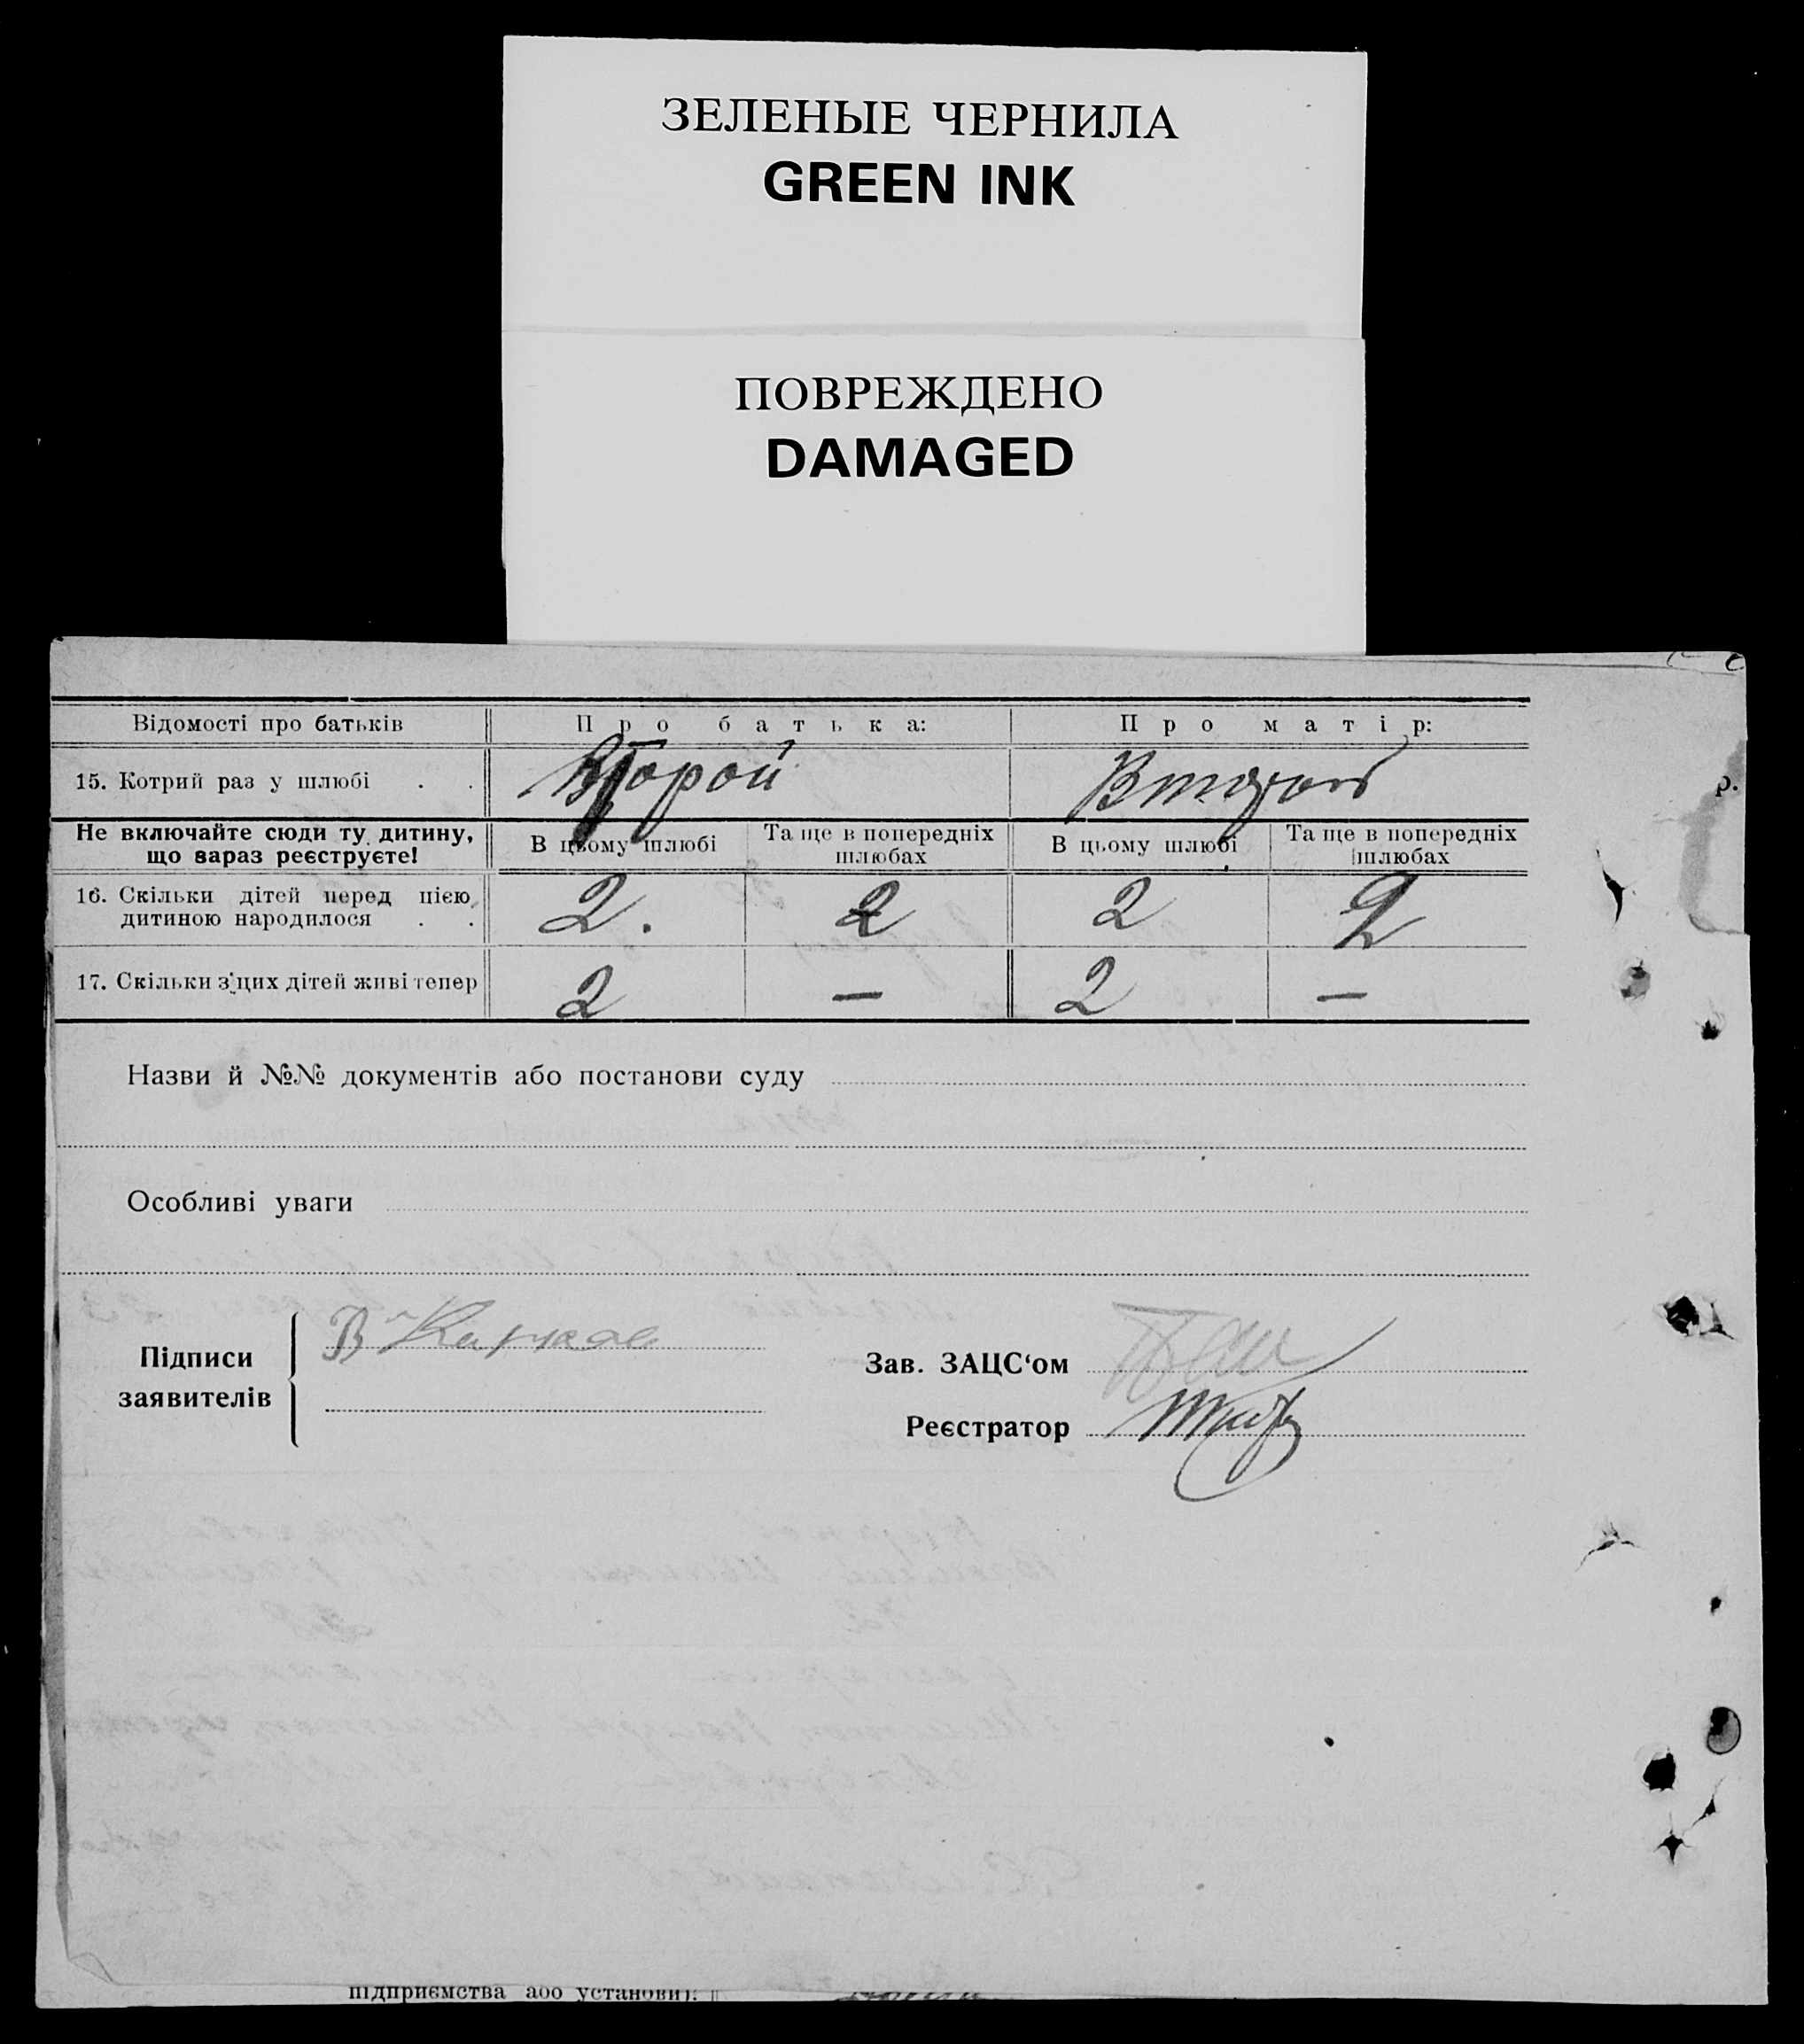 ЗЕЛЕНЫЕ ЧЕРНИЛА
GREEN INK
ПОВРЕЖДЕНО
DAMAGED
Відомості про батьків Про батька: Про матір:
15. Котрий раз у шлюбі . . Второй Второй
р.
Не включайте сюди ту дитину, що зараз реєструєте! В цьому шлюбі Та ще в попередніх шлюбах В цьому шлюбі Та ще в попередніх шлюбах
16. Скільки дітей перед цією дитиною народилося . . 2. 2 2 2
17. Скільки з цих дітей живі тепер 2 — 2 —
Назви й №№ документів або постанови суду
Особливі уваги
Підписи заявителів
Зав. ЗАЦС‘ом
Реєстратор
підприємства або установи).